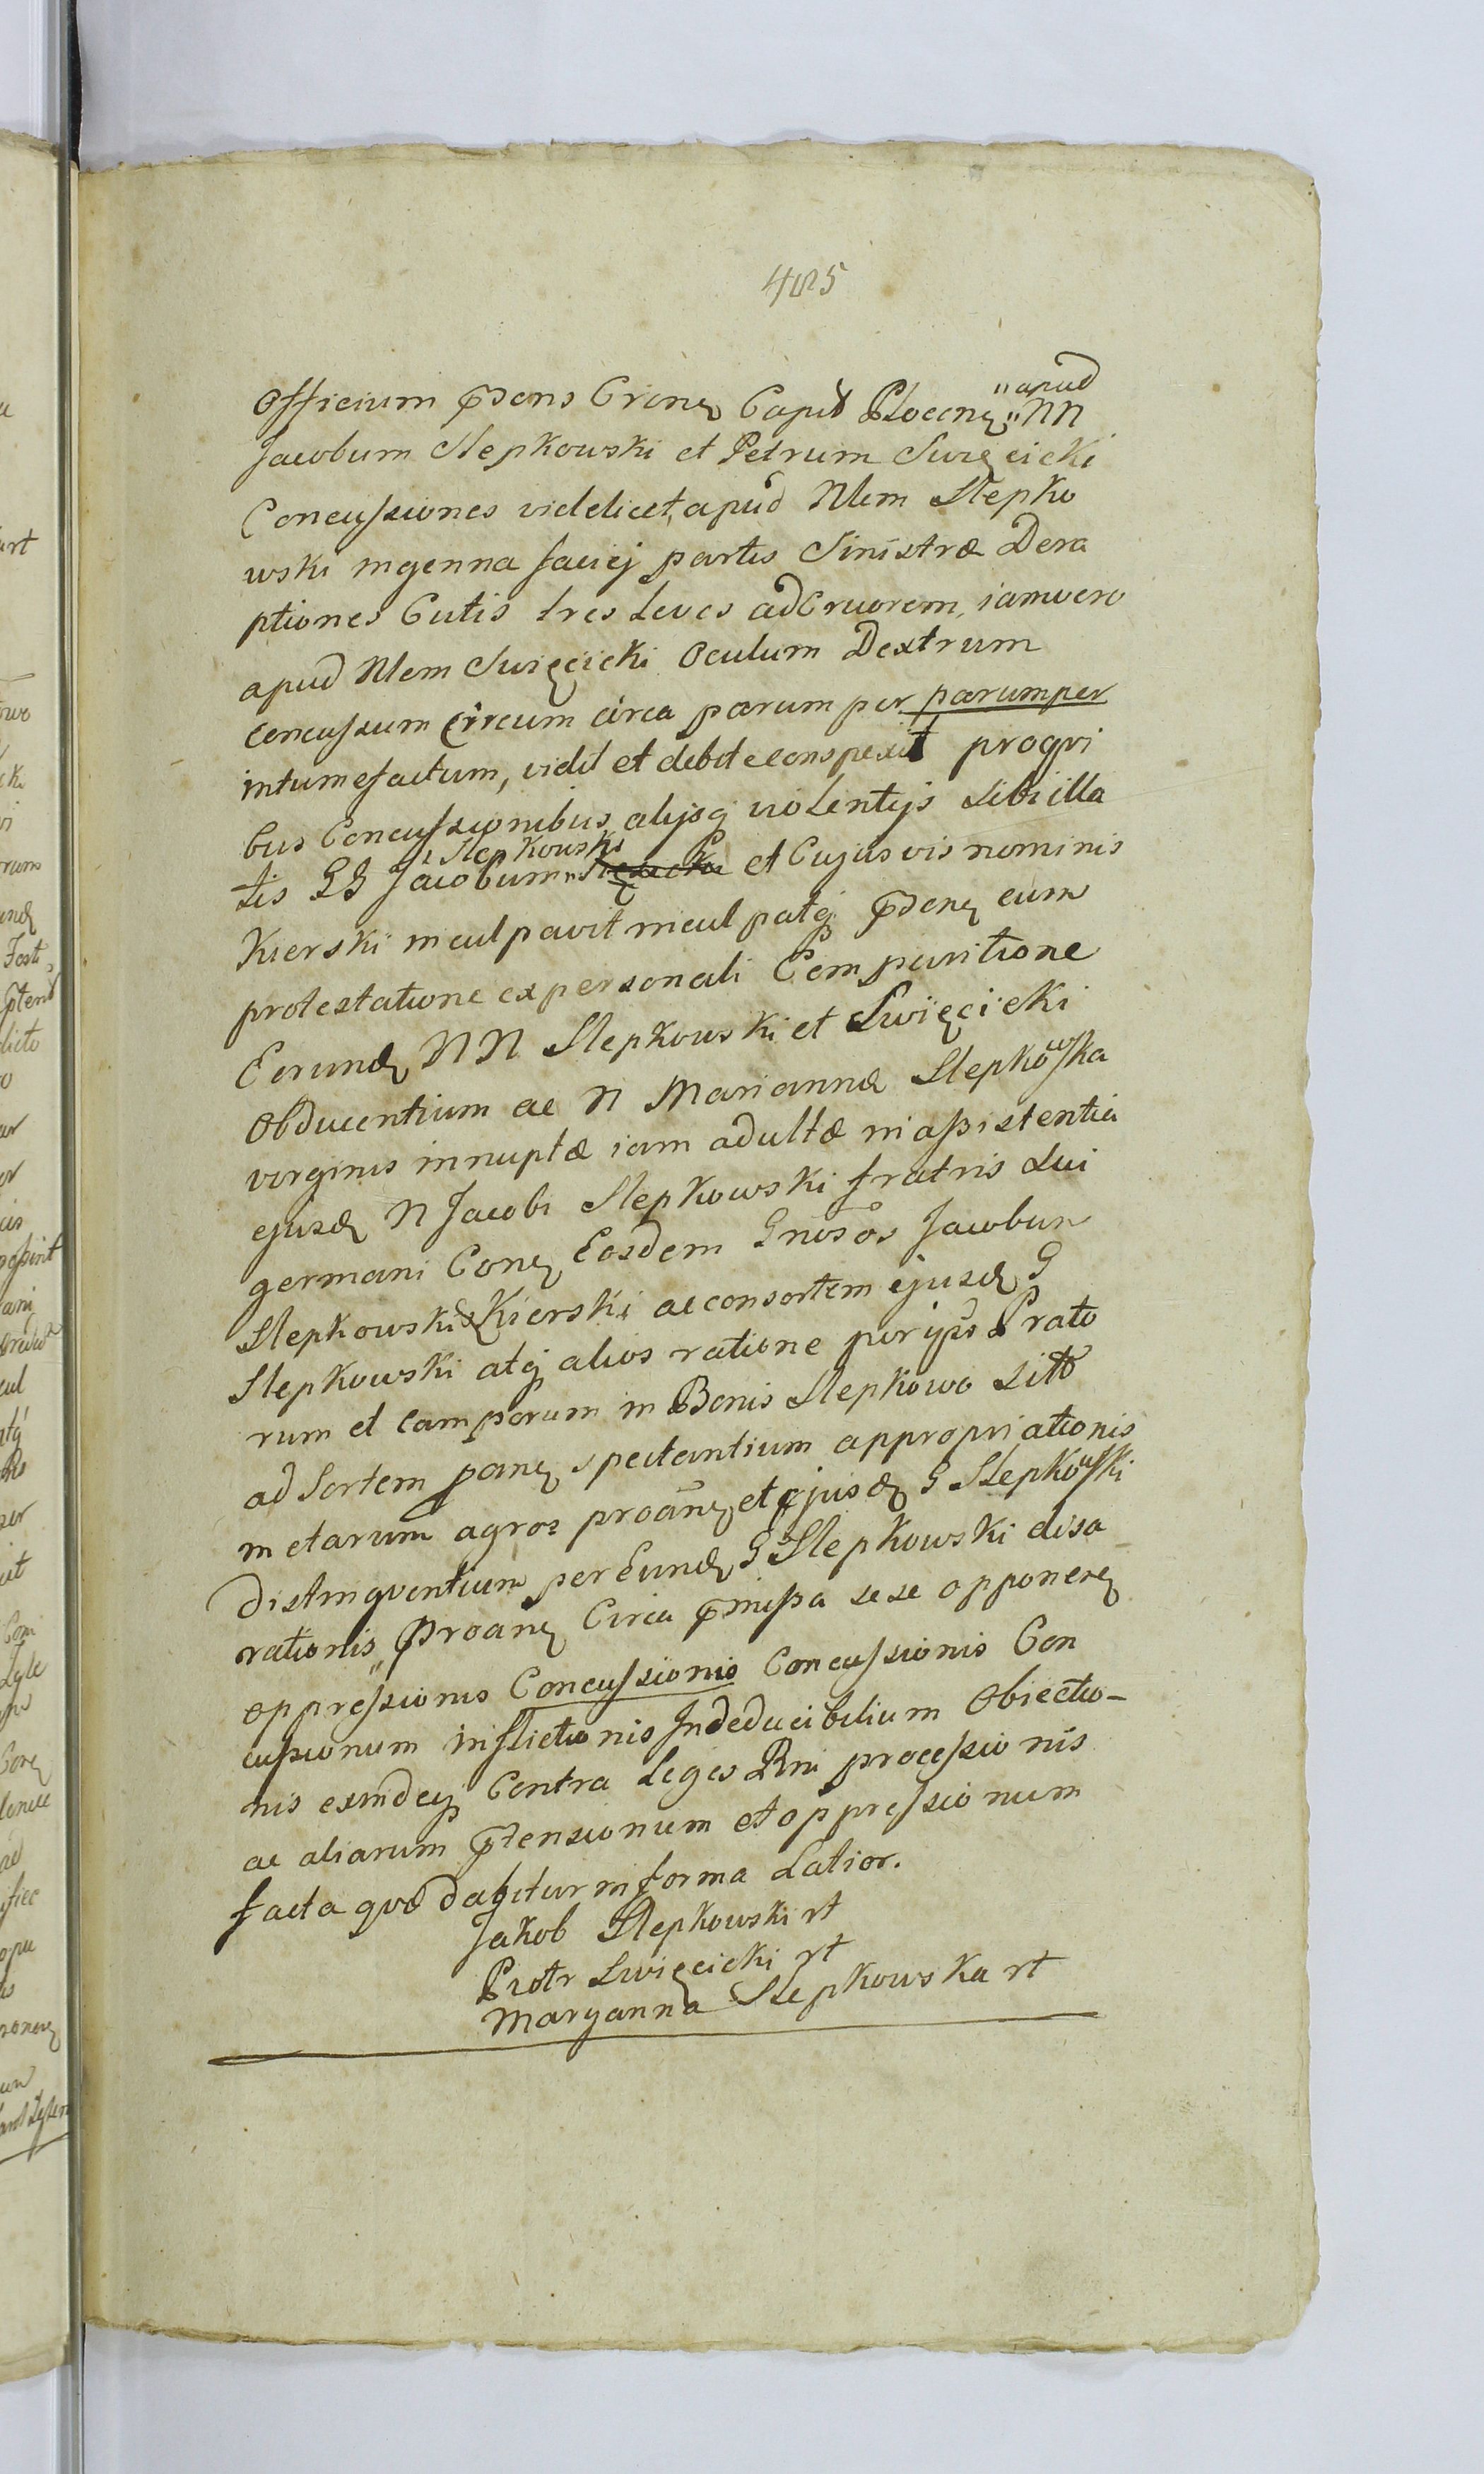 485
Officium pñdens Crcnę Capit Plocenę "apud" NN
Jacobum Slepkowski et Petrum Swięcicki
Concussiones videlicet, apud Nlem Slepko
wski ingenna faciej partis Sinistræ Dera
ptiones Cutis tres Leves ad Cruorem, iamvero
apud Nlem Swięcicki Oculum Dextrum
concussum circum circa parum per parumper
intumefactum, vidit et debite conspexit proqvi
bus Concussionibus alijsq violentijs sibi illa
tis GG Jacobum "Slepkowski et Cujusvis nominis
Kierski inculpavit inculpatq pñdenę cum
protestatione ex personali Comparitione
Eorundę NN Slepkowski et Swięcicki
Obducentium ac N Mariannæ Slepkowska
virginis innuptæ iam adultæ in assistentia
ejusdę N Jacobi Slepkowski fratris sui
germani Conę Eosdem Gnosos Jacobum
Slepkowski & Kierski ac consortem ejusdę G
Slepkowski atq alios ratione per ipsos Prato
rum et camporum in Bonis Slepkowo sitto
ad Sortem panę spectantium appropriationis
metarum agros proanę et ejusdę G Slepkowski
distinqventium per Eundę G Slepkowski disa
rationis, "Proanę Circa pmissa sese opponenę
oppressionis Concussionis Concussionis Con
cussionum inflictionis Indeducibilium Obiectio-
nis exindeq Contra Leges Rni processionis
ac aliarum ptensionum et oppressionum
facta qvæ dabitur in forma Latior.
Jakob Slepkowski rt
Piotr Swięcicki rt
Maryanna Slepkowska rt